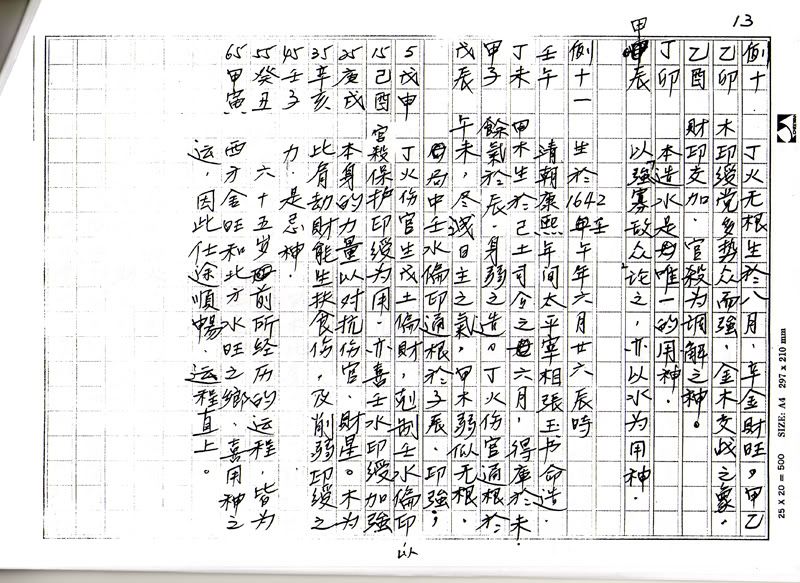 13
例十 丁火无根生於八月.辛金財旺,甲乙
乙卯 木印绶党多势众而強.金木交战之象,
乙酉 財印交加.官殺为调解之神。
丁卯 本造水是唯一的用神.
甲辰 以「強寡敌众」论之,亦以水为用神.
例十一 生於1642壬午年六月廿六辰時
壬午 靖朝康熙年间太平宰相張玉书命造.
丁未 甲木生於己土司令之六月,得庫於未.
甲子 餘氣於辰.身弱之造。丁火伤官通根於
戊辰 午未,尽洩日主之氣,甲木弱似无根.
局中壬水偏印通根於子辰.印強;
5戊申 丁火伤官生戊土偏財,剋制壬水偏印以
15己酉 官殺保护印绶为用.亦喜壬水印绶加強
25庚戌 本身的力量以对抗伤官.財星。木为
35辛亥 比肩劫財能生扶食伤,及削弱印绶之
45壬子 力.是忌神.
55癸丑 六十五岁前所经历的运程.皆为
65甲寅 西方金旺和北方水旺之鄉.喜用神之
运,因此仕途順暢.运程直上。
25 x 20 = 500 SIZE: A4 297 x 210 mm